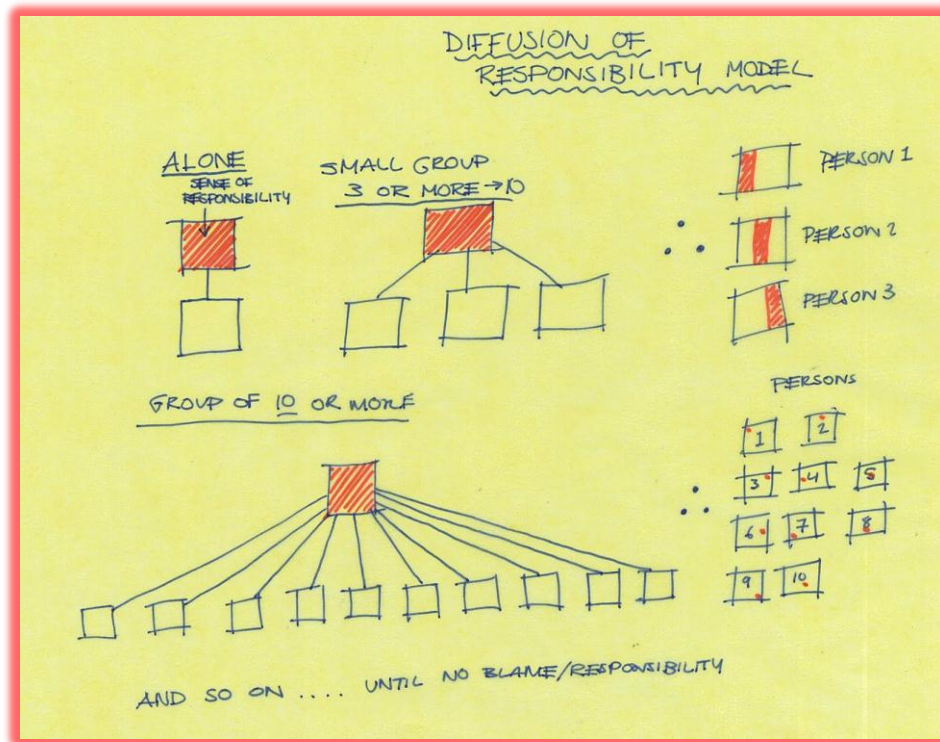 DIFFUSION OF
RESPONSIBILITY MODEL
ALONE
SENSE OF
RESPONSIBILITY
SMALL GROUP
3 OR MORE → 10
PERSON 1
PERSON 2
PERSON 3
GROUP OF 10 OR MORE
PERSONS
1 2
3 4 5
6 7 8
9 10
AND SO ON .... UNTIL NO BLAME/RESPONSIBILITY